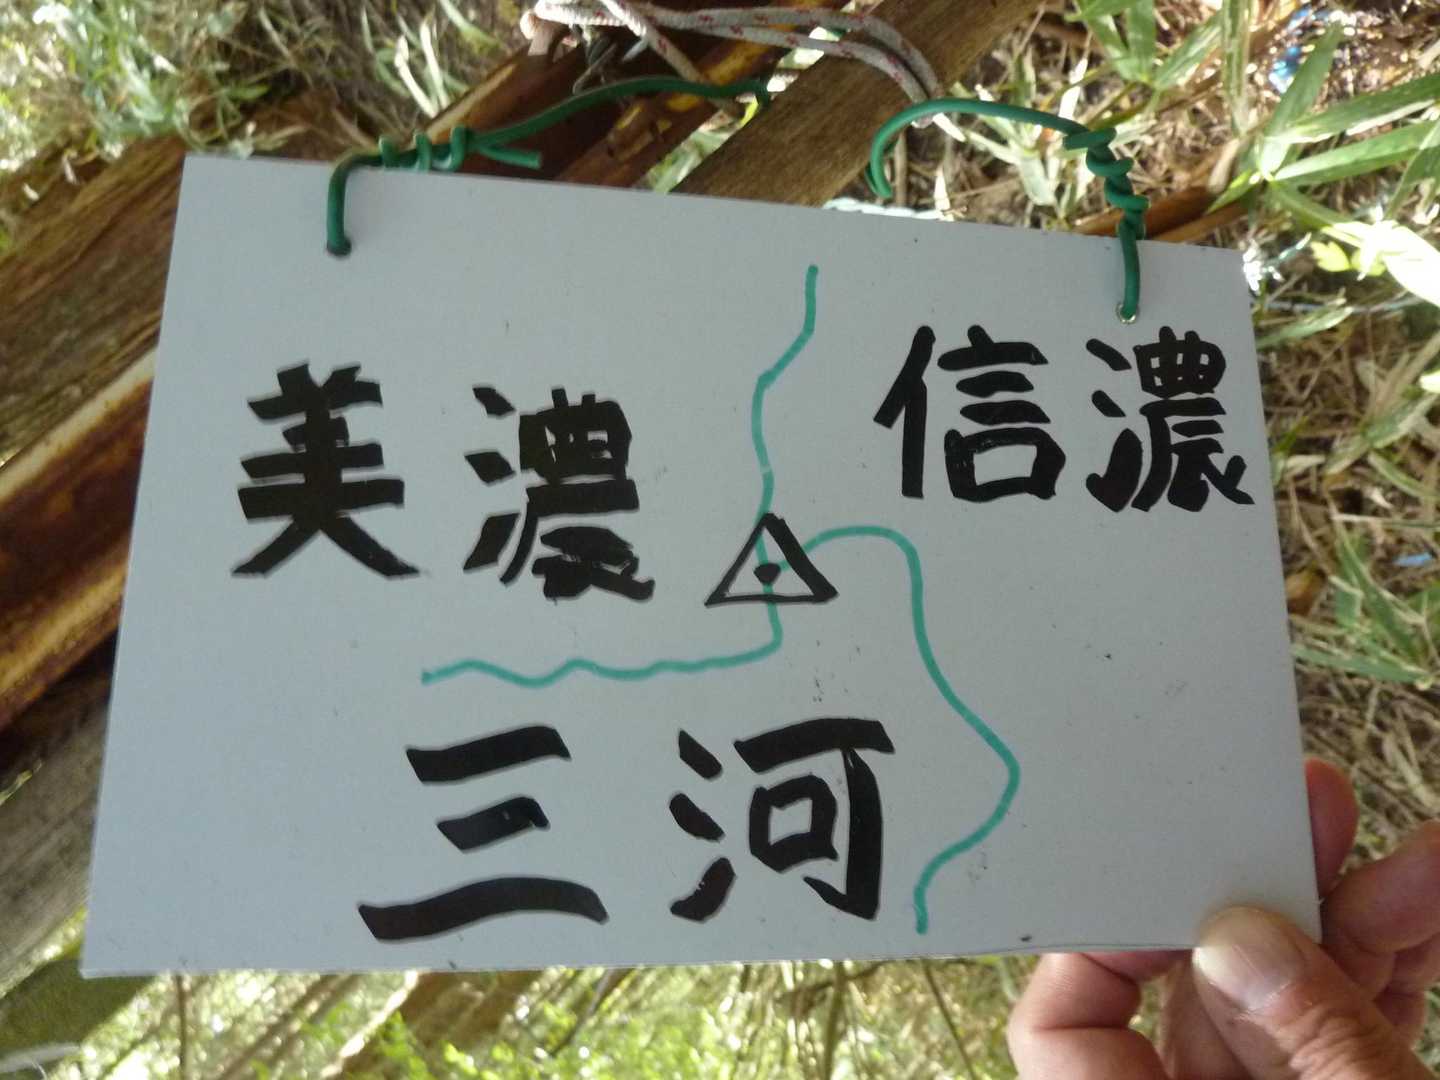 美濃
信濃
三河